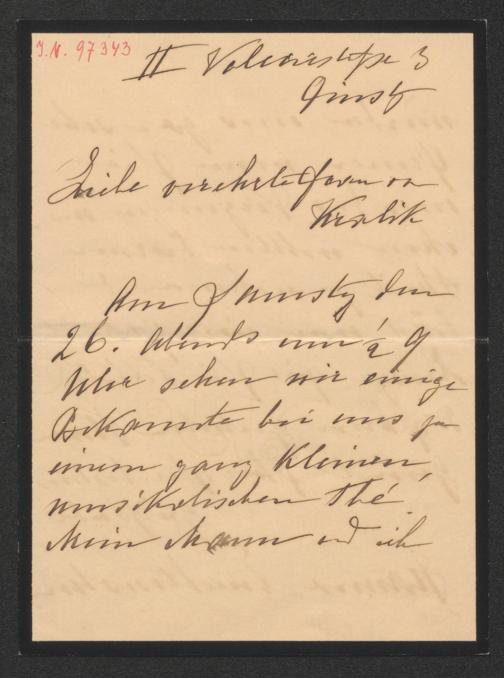 J.N. 97343
II 3
Liebe verehrte Frau von
Kralik
Am Samstg den
26. Abends um 1/2 9
Uhr sehen wir einige
Bekannte bei uns zu
einem ganz kleinen,
musikalischen Thé.
Mein Mann und ich